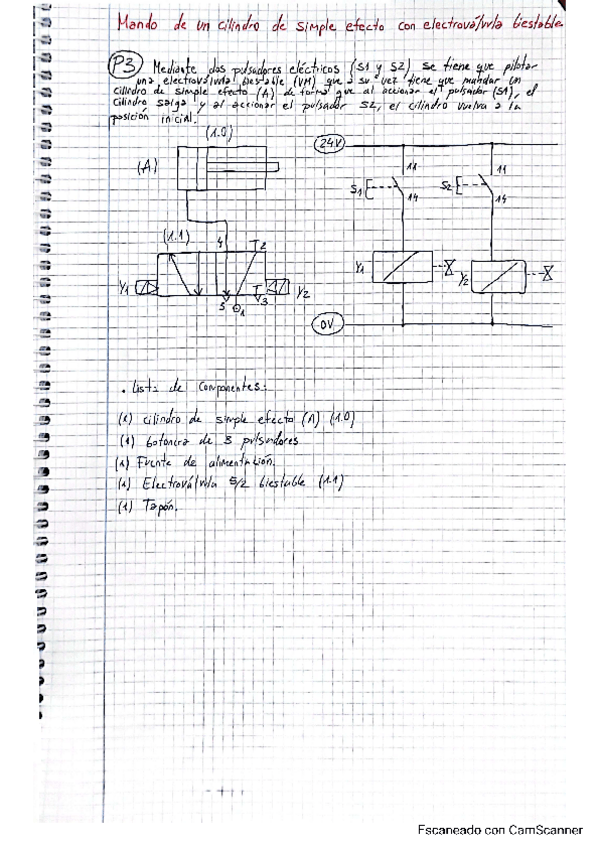 Mando de un cilindro de simple efecto con electroválvula biestable
P3 Mediante dos pulsadores eléctricos (S1 y S2) se tiene que pilotar
una electroválvula biestable (VM) que a su vez tiene que mandar un
cilindro de simple efecto (A) de forma que al accionar el pulsador (S1), el
cilindro salga y al accionar el pulsador S2, el cilindro vuelva a la
posición inicial.
(1.0)
(A)
(1.1)
4
T2
Y1
5
1
T
3
Y2
24V
11
11
S1
S2
14
14
Y1
Y2
0V
. Lista de componentes:
(1) cilindro de simple efecto (A) (1.0)
(1) botonera de 3 pulsadores
(1) Fuente de alimentación.
(1) Electroválvula 5/2 biestable (1.1)
(1) Tapón.
Escaneado con CamScanner